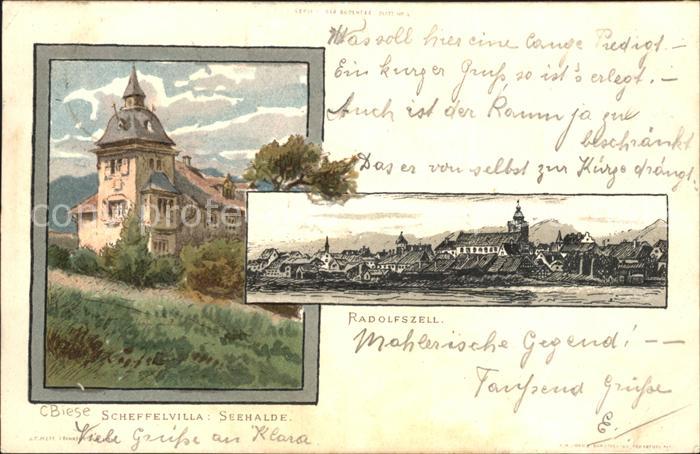 Was soll hier eine lange Predigt. –
Ein kurzer Gruß, so ist's erlegt. –
Auch ist der Raum ja zu
beschränkt
Das er von selbst zur Kürze drängt.
RADOLFSZELL.
Mahlerische Gegend! – –
Tausend Grüße
C Biese SCHEFFELVILLA: SEEHALDE.
Viele Grüße an Klara.